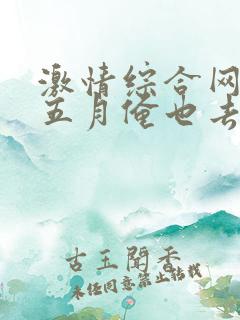 激情综合网
五月俺也去
古玉闻香
未经同意禁止转载